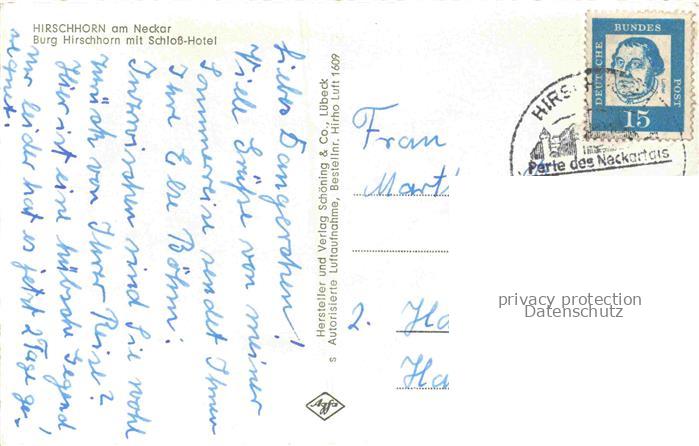 HIRSCHHORN am Neckar
Burg Hirschhorn mit Schloß-Hotel
Liebes
Viele Grüße von meiner
Sommerreise sendet Ihnen
Ihre Else Böhm.
Inzwischen sind Sie wohl
zurück von Ihrer Reise?
Hier ist eine hübsche Gegend
nur leider hat es jetzt 2 Tage ge-
regnet!
Hersteller und Verlag Schöning & Co., Lübeck
S Autorisierte Luftaufnahme, Bestellnr. Hirho Luft 1609
Agfa
DEUTSCHE
BUNDES
POST
Luther
15
HIRSCH
Perle des Neckartals
Frau
Marti
2. Ha
Ha
privacy protection
Datenschutz